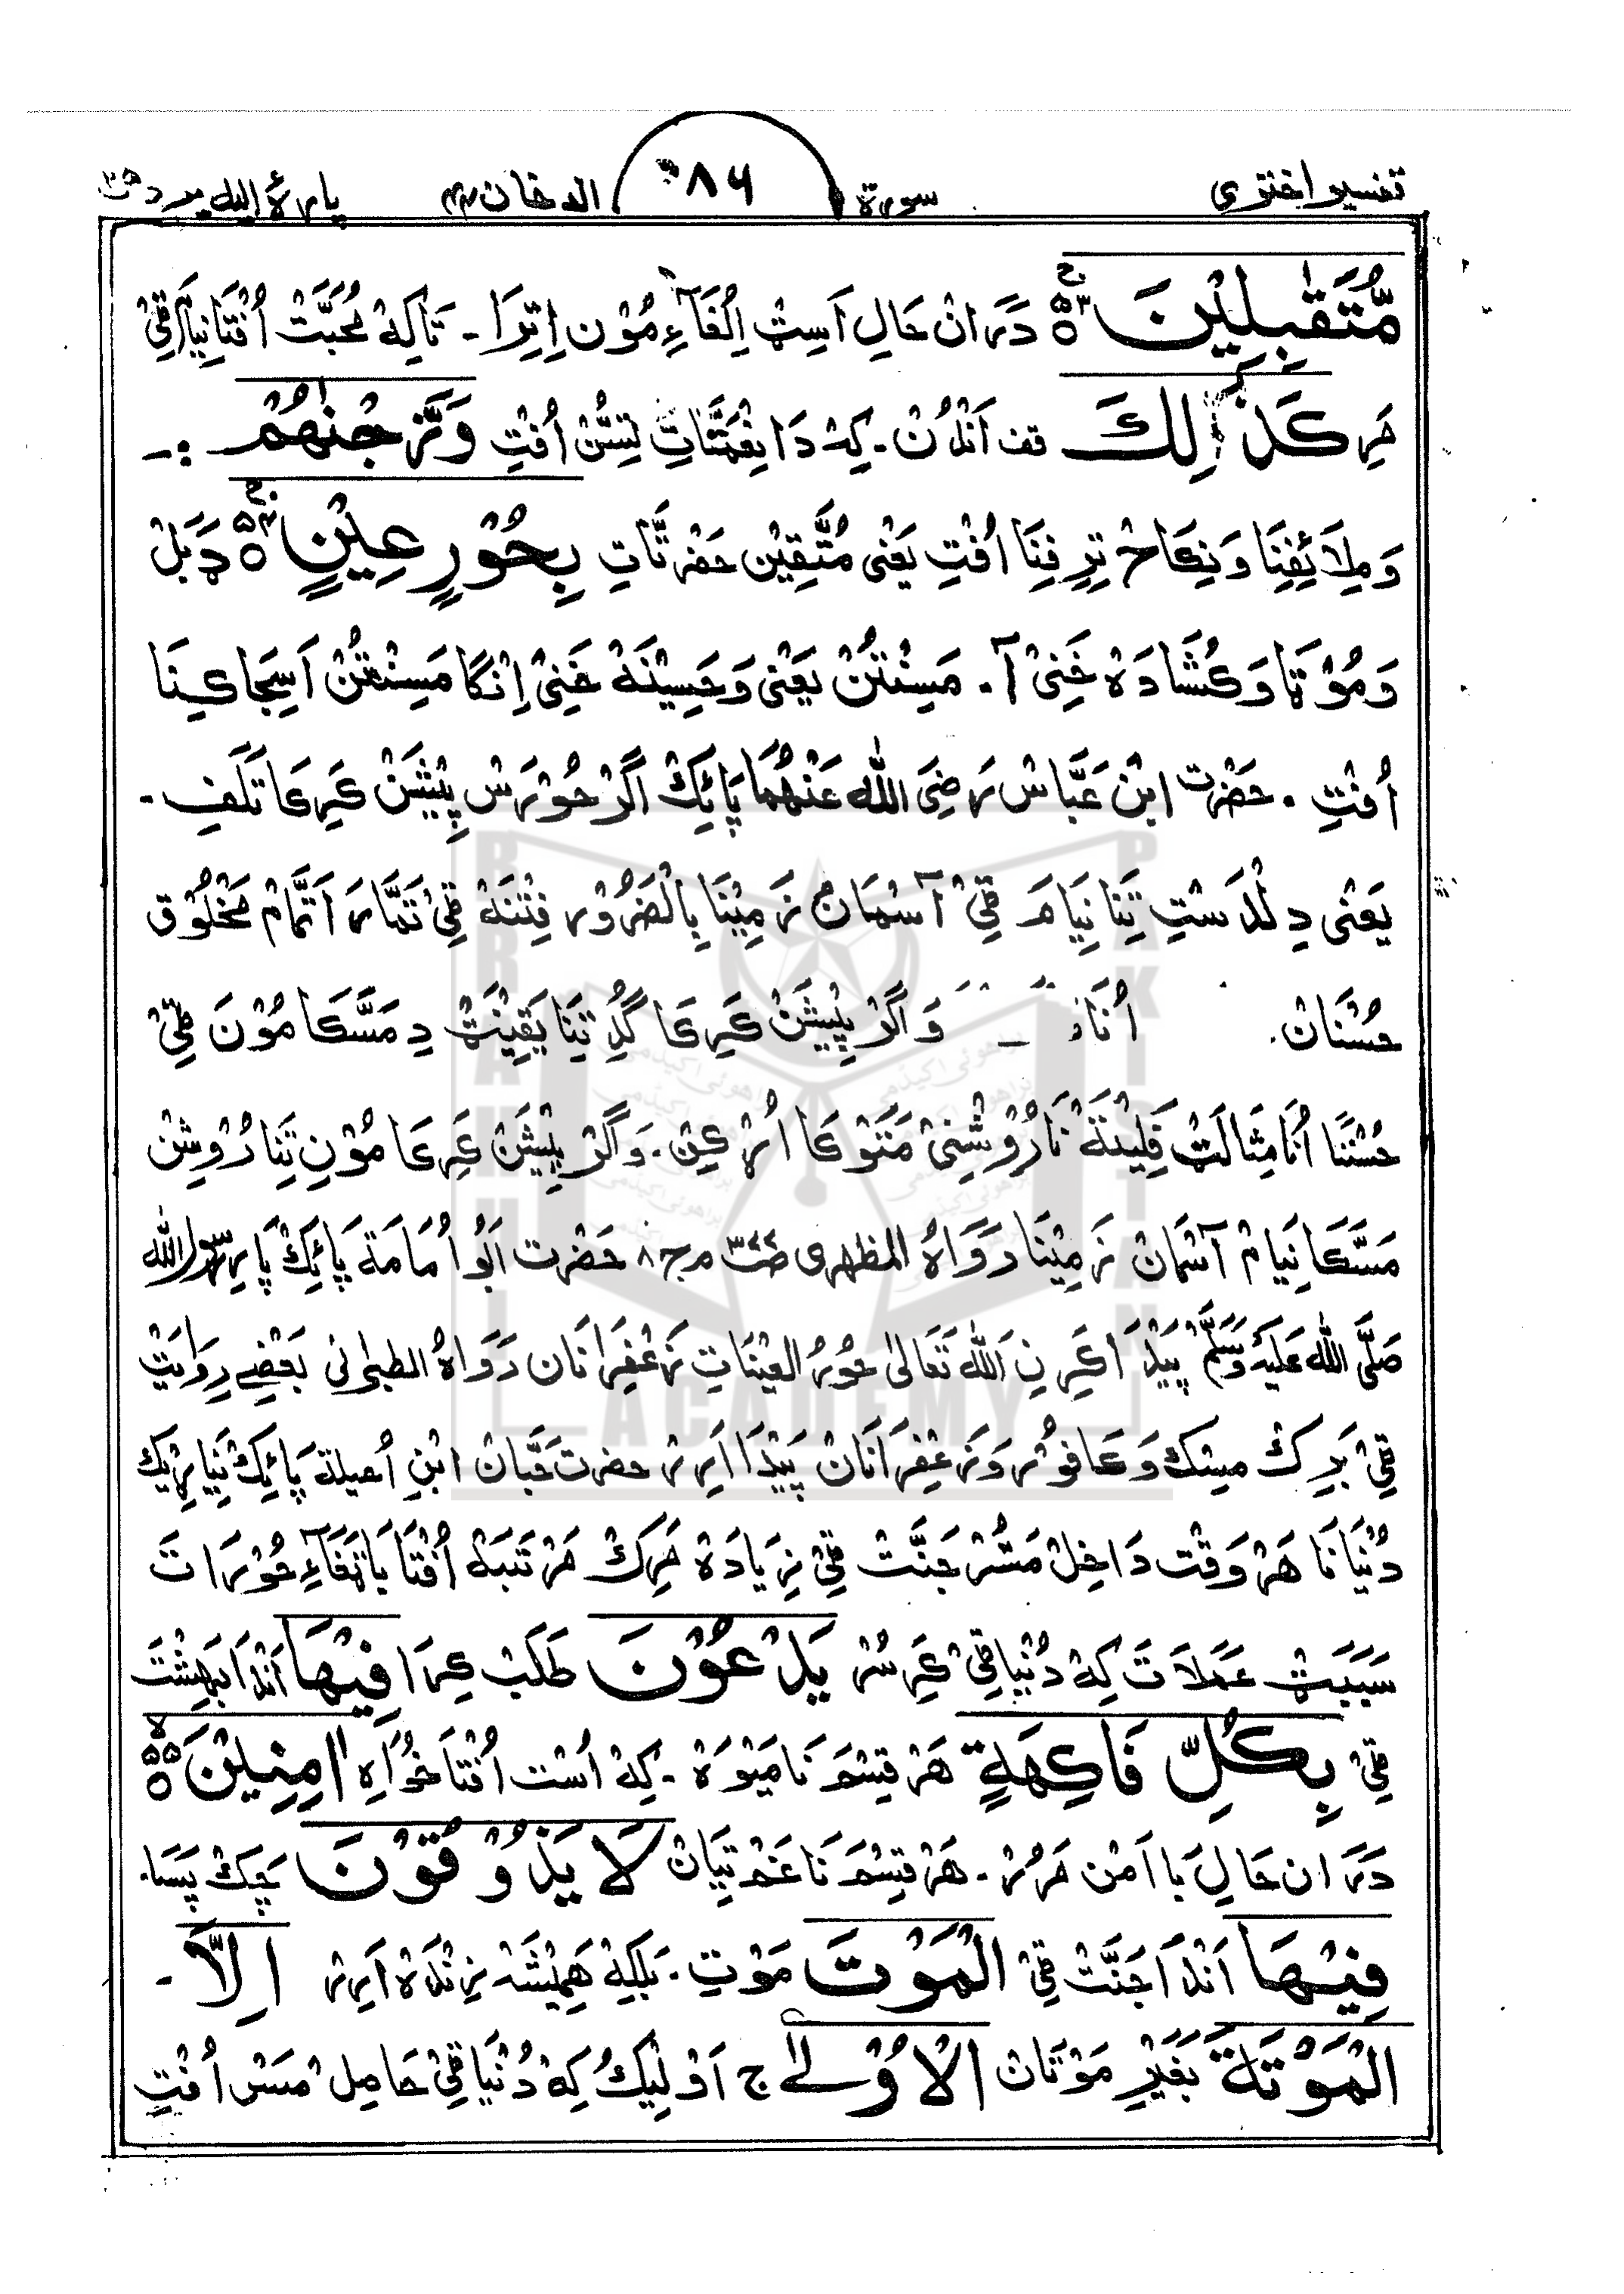 تفسیر اختری سورة ٨٦ الدخان ٤٤ پارۀ الیہ یرد ٢٥
مُّتَقٰبِلِیْنَ ۵۳ دَرَان حَالِ اَسِٹ اِلْفَآءِ مُوْن اِیْرَا۔ تَاکِہْ مُحَبَّتْ اُفْتَا نِیَام قِیْ
مَرِ کَذٰلِکَ قف اَنْدُنْ۔ کِہْ دَا نِعْمَتَاتِ تِسُّنْ اُفْتِ وَزَوَّجْنٰھُمْ
وَمِلَائِفِنَا وَنِکَاحْ تِرِفِنَا اُفْتِ یَعْنِی مُتَّقِیْن حَضْرَتَاتِ بِحُوْرٍ عِیْنٍ ۵۴ دَبْل
وَمُوْتَا وَکُشَادَہْ خَنِیْ آ۔ مَسِنْتَنْ یَعْنِی وَحَسِیْنَہْ خَنِیْ اِنْگَا مَسِنْتَنْ اَسِجَا کِنَا
اُفْتِ۔ حَضْرَت ابْن عَبَّاسْ رَضِیَ اللّٰہ عَنْھُمَا پَائِکْ اَگَرْ حُوْرَسْ پِیْشَنْ کَرِعَا تَلَفِ۔
یَعْنِی دِلْدَسْتِ تِنَا نِیَامَ قِیْ آسْمَان زَمِیْنَا بِالْضَرُوْر فِتْنَہْ قِیْ تَمَّارَ اَتَّمَامْ مَخْلُوْق
حُسْنَان۔ اُنَا وَاَگَرْ پِیْشَنْ کَرِعَا گُدِ تِنَا یَقِیْنَٹْ دِمَسَّکَا مُوْنَ قِیْ
حُسْنَا اُنَا مِثَالَٹْ فَلِیْتَہْ نَا رُوْشْنِیْ مَتَوْکَا اُمْر کِنْ۔ وَاَگَرْ پِیْشَنْ کَرِعَا مُوْنِ تِنَا رُوْشِنْ
مَسَّکَا نِیَامْ آسْمَانْ زَمِیْنَا رَوَاہُ المظھری ج٨ حَضْرَت اَبُو اُمَامَۃ پَائِکْ پَارِ رسول اللّٰہ
صَلَّی اللّٰہ عَلَیْہِ وَسَلَّمْ پَیْدَا کَرِ نِ اَللّٰہ تَعَالیٰ حُوْرُ العِیْنَاتِ زَعْفِرَانَان رَوَاہُ الطبرانی بَعْضِے رِوَایَتْ
قِیْ بَرِکْ مِسِنْک وَکَافُوْر وَزَعْفِرَانَانْ پَیْدَا اَرِرْ حضرت حَبَّانْ ابْنِ اُھیلۃ پَائِکْ نِیَارِیک
دُنْیَانَا ھَرْ وَقْت دَاخِلْ مَسُّرْ جَنَّتْ قِیْ زِیَادَہْ مَرِکْ مَرْتَبَہْ اُفْتَا بَاتَفَآءِ حُوْرَاتَ
سَبَبَٹْ عَمَلَاتَ کِہْ دُنْیَا قِیْ کَرِسُرْ یَدْعُوْنَ طَلَبْ کِرَا فِیْھَا اَنْدَا بَھِشْت
قِیْ بِکُلِّ فَاکِھَۃٍ ھَرْ قِسْمَ نَا مَیْوَہْ۔ کِہْ اُسْت اُفْتَا خُوَاہِ اٰمِنِیْنَ ۵۵
دَرَان حَالِ بَا اَمْن مَرُرْ۔ ھَرْ قِسْمَ نَا غَمْ تِیَانْ لَا یَذُوْقُوْنَ چَکْ پَسَا۔
فِیْھَا اَنْدَا جَنَّتْ قِیْ الْمَوْتَ مَوْتِ۔ بَلکِہْ ھَمِیْشَہْ زِنْدَہْ اَرِرْ اِلَّا۔
الْمَوْتَۃَ بَغَیْرِ مَوْتَانْ الْاُوْلٰی ج اَوْلِیْکُ کِہْ دُنْیَا قِیْ حَاصِلْ مَسْ اُفْتِ
BRAHUI
ACADEMY
PAKISTAN
براھوئی اکیڈمی